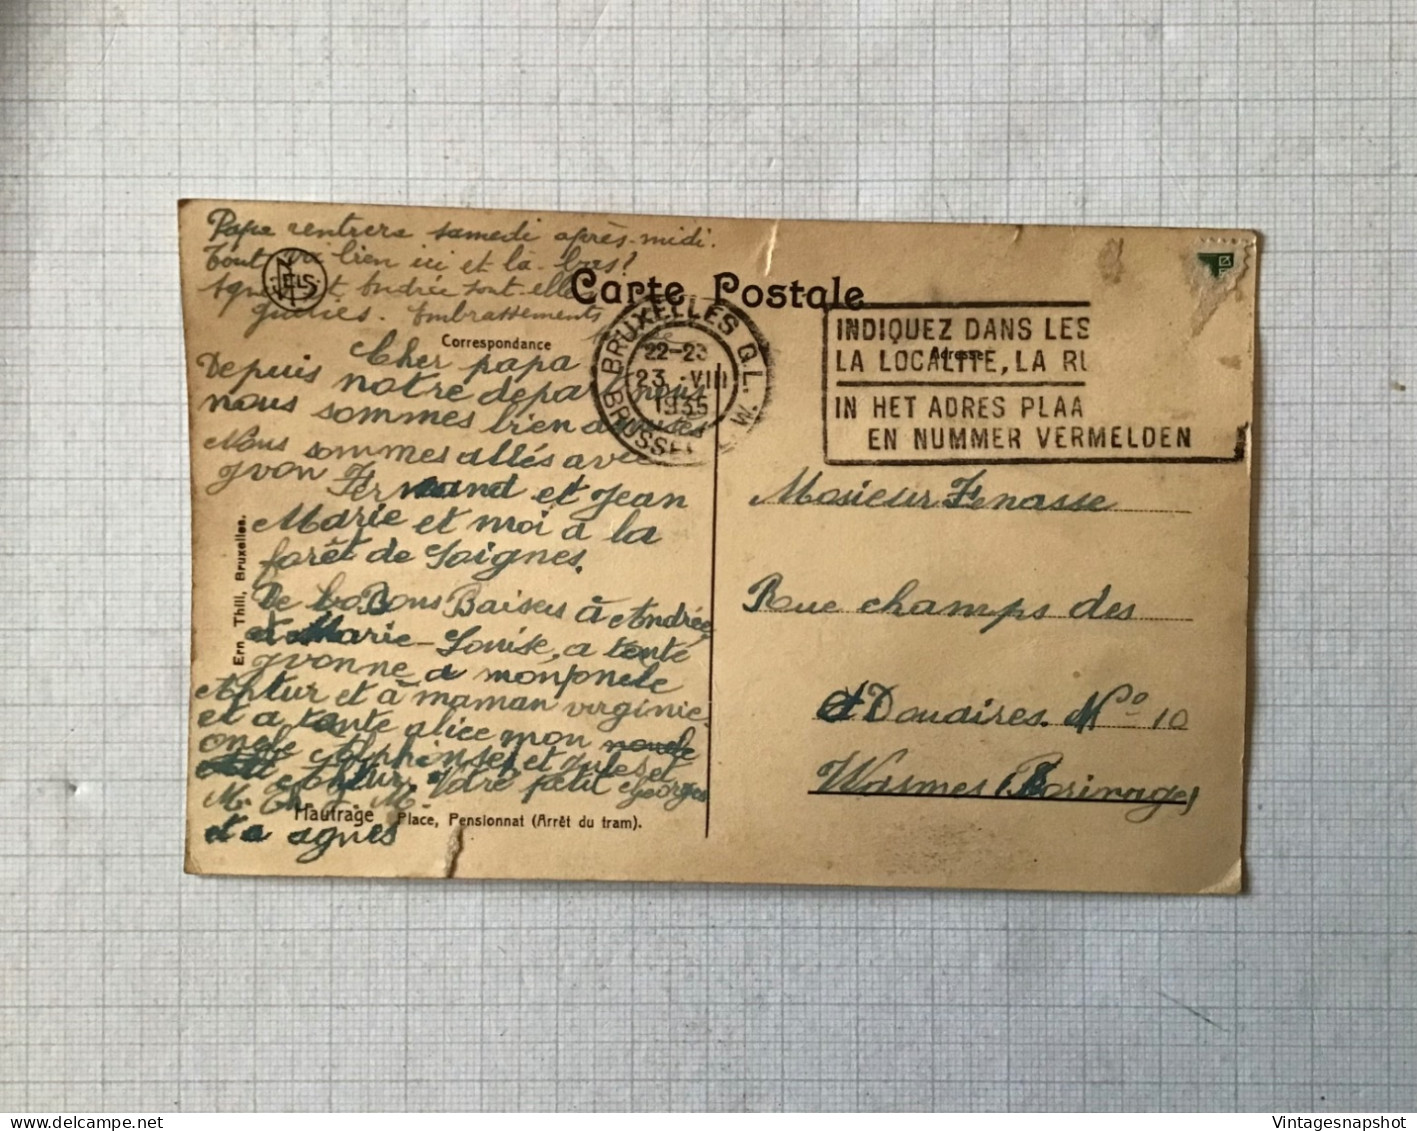 Papa rentrera samedi après-midi.
Tout va bien ici et la-bas?
Agnes et Andrée sont-elles
guéries. Embrassements
NELS
Carte Postale
Correspondance
BRUXELLES Q.L.
22-23
23 VIII
1935
BRUSSEL
INDIQUEZ DANS LES
LA LOCALITE, LA RU
IN HET ADRES PLAA
EN NUMMER VERMELDEN
Adresse
Cher papa
Depuis notre depart nous
nous sommes bien amusés
Nous sommes allés avec
yvon Fernand et Jean
Marie et moi a la
forêt de Soignes.
De bons Baisers à Andrée
et Marie-Louise, a tente
yvonne a mon
Artur et à maman virginie
et a tente alice mon
oncle Alphonse et Jules et
Artur. Votre petit Georges
et a agnes
Ern Thill, Bruxelles.
Hautrage Place, Pensionnat (Arrêt du tram).
Mosieur Fenasse
Rue champs des
Douaires. No 10
Wasmes (Borinage)
Vintagesnapshot